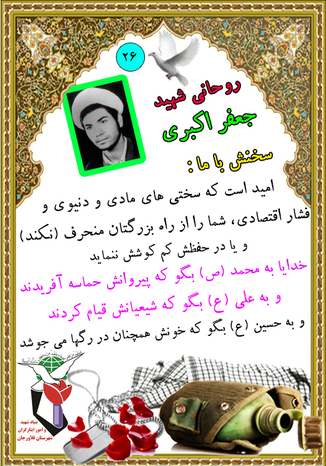 ۲۶
روحانی شهید
جعفر اکبری
سخنش با ما :
امید است که سختی های مادی و دنیوی و
فشار اقتصادی، شما را از راه بزرگتان منحرف (نکند)
و یا در حفظش کم کوشش ننماید
خدایا به محمد (ص) بگو که پیروانش حماسه آفریدند
و به علی (ع) بگو که شیعیانش قیام کردند
و به حسین (ع) بگو که خونش همچنان در رگها می جوشد
بنیاد شهید
و امور ایثارگران
شهرستان فلاورجان